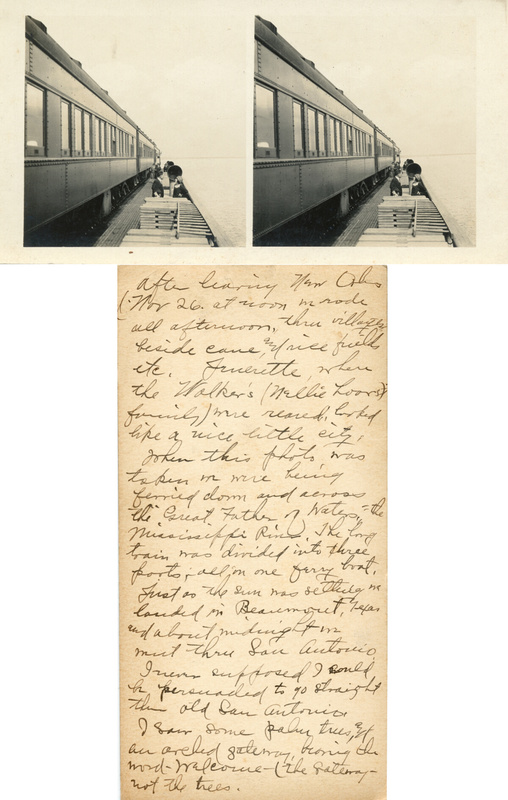 After leaving New Orlns
(Nov 26. at noon we rode
all afternoon, thru villages,
beside cane, & rice fields
etc. Jenerette, where
the Walker's (Nellie
family) were reared, looked
like a nice little city.
When this photo was
taken we were being
ferried down and across
the Great Father of Waters, = the
Mississippi River. The long
train was divided into three
parts; all on one ferry boat.
Just as the sun was setting we
landed in Beaumont, Texas
and about midnight we
went thru San Antonio.
I never supposed I could
be persuaded to go straight
thru old San Antonio.
I saw some palm trees, &
an arched gateway, having the
word - Welcome - (the gateway -
not the trees.